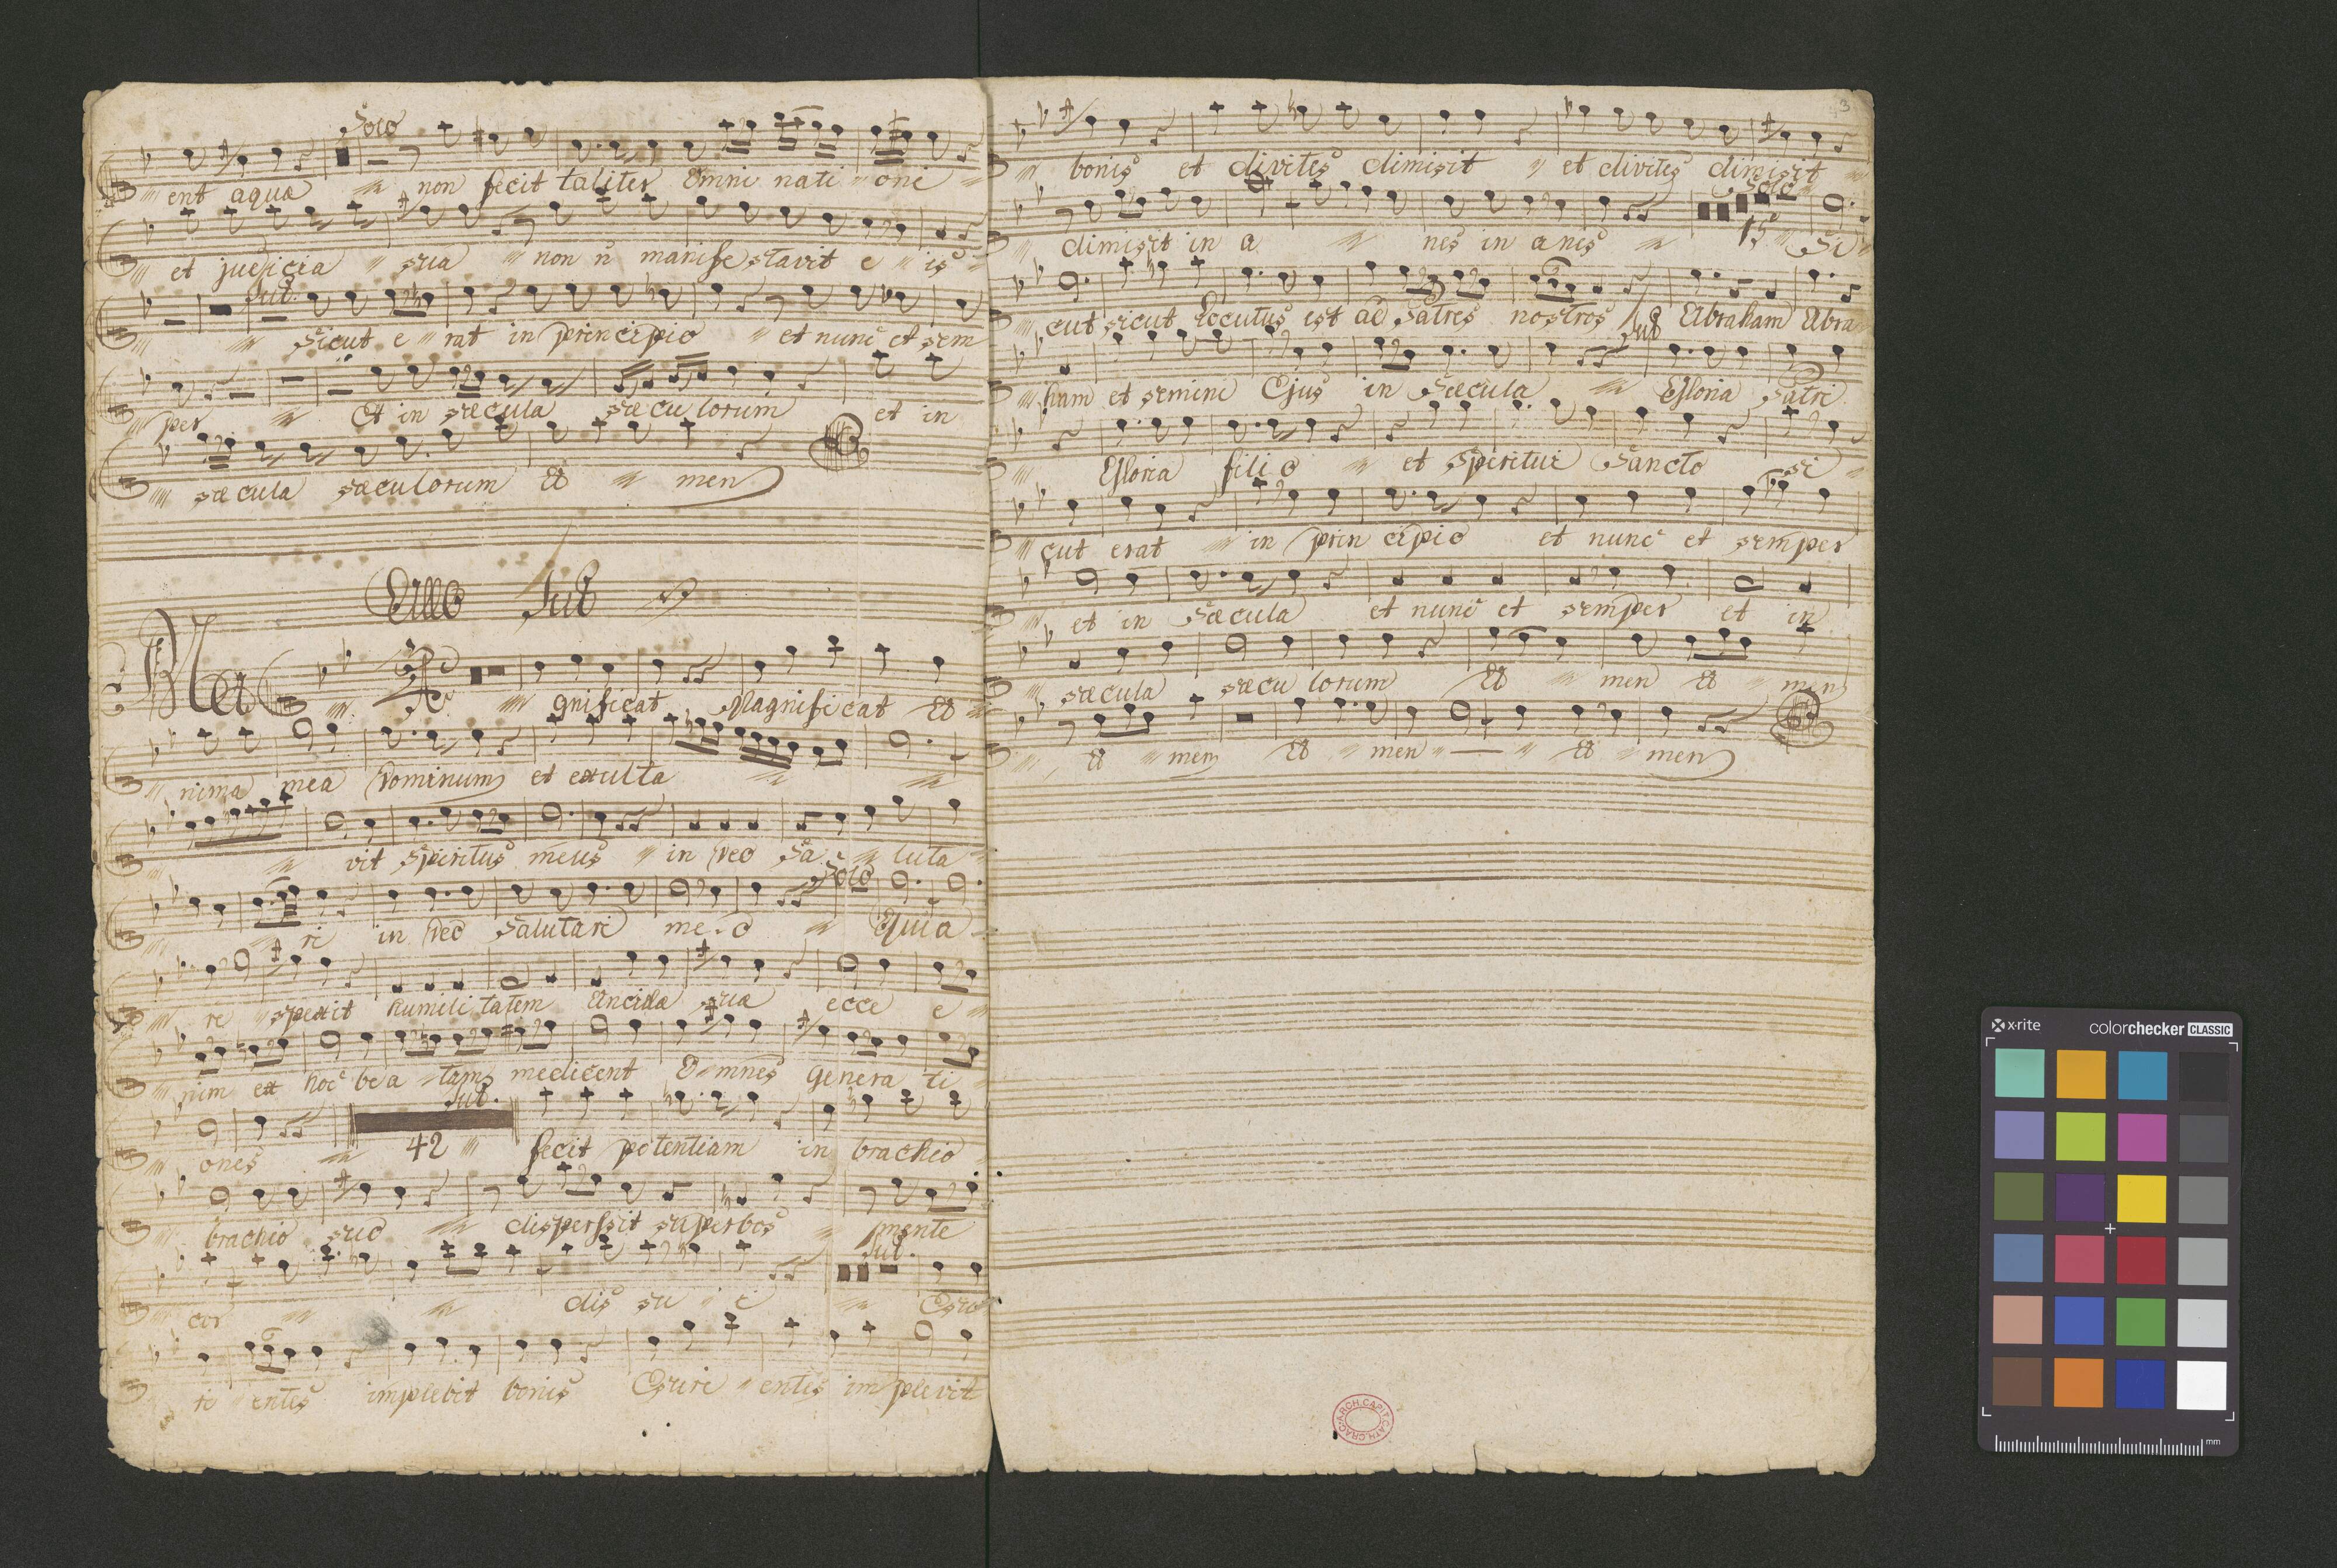 Solo
ent aquæ non fecit taliter Omni nati oni
et judicia sua non n manife stavit e is
Tut.
Sicut e rat in principio et nunc et sem
per Et in sæcula sæcu lorum et in
sæcula sæculorum A men
Allo Tut
Ma gnificat Magnificat A
nima mea Dominum et exulta
vit Spiritus meus in Deo Sa luta
Solo
ri in Deo Salutari me o Quia
re spexit humili tatem Ancilæ suæ ecce e
nim ex hoc bea tam medicent Omnes Genera ti
Tut.
ones 42 fecit potentiam in brachio
brachio suo disperssit superbos mente
Tut.
cor dis su i Esu
ri entes implebit bonis Esuri entes im plevit
3
bonis et divites dimisit et divites dimisit
Solo
dimisit in a nes in anes 15 Si
cut sicut Locutus est ad Patres nostros Abraham Abra
Tut
ham et semini Ejus in Sæcula Gloria Patri
Gloria fili o et Spiritui Sancto si
cut erat in prin cipio et nunc et semper
et in Sæcula et nunc et semper et in
sæcula sæcu lorum A men A men
A men A men A men
ARCH. CAPIT. CATH. CRAC.
x-rite colorchecker CLASSIC
mm